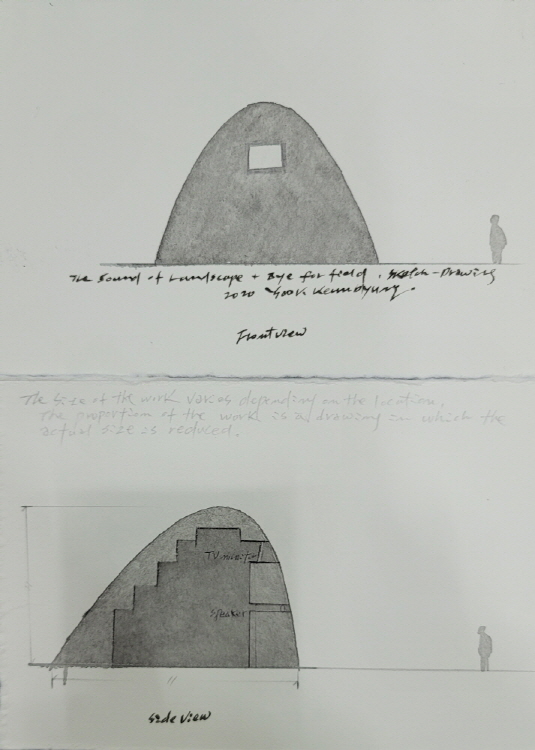 The Sound of Landscape + Eye for field. Sketch-Drawing
2020 Yook Keunbyung.
Front view
The size of the work varies depending on the location.
The proportion of the work is a drawing in which the
actual size is reduced.
TV monitor
Speaker
Side View